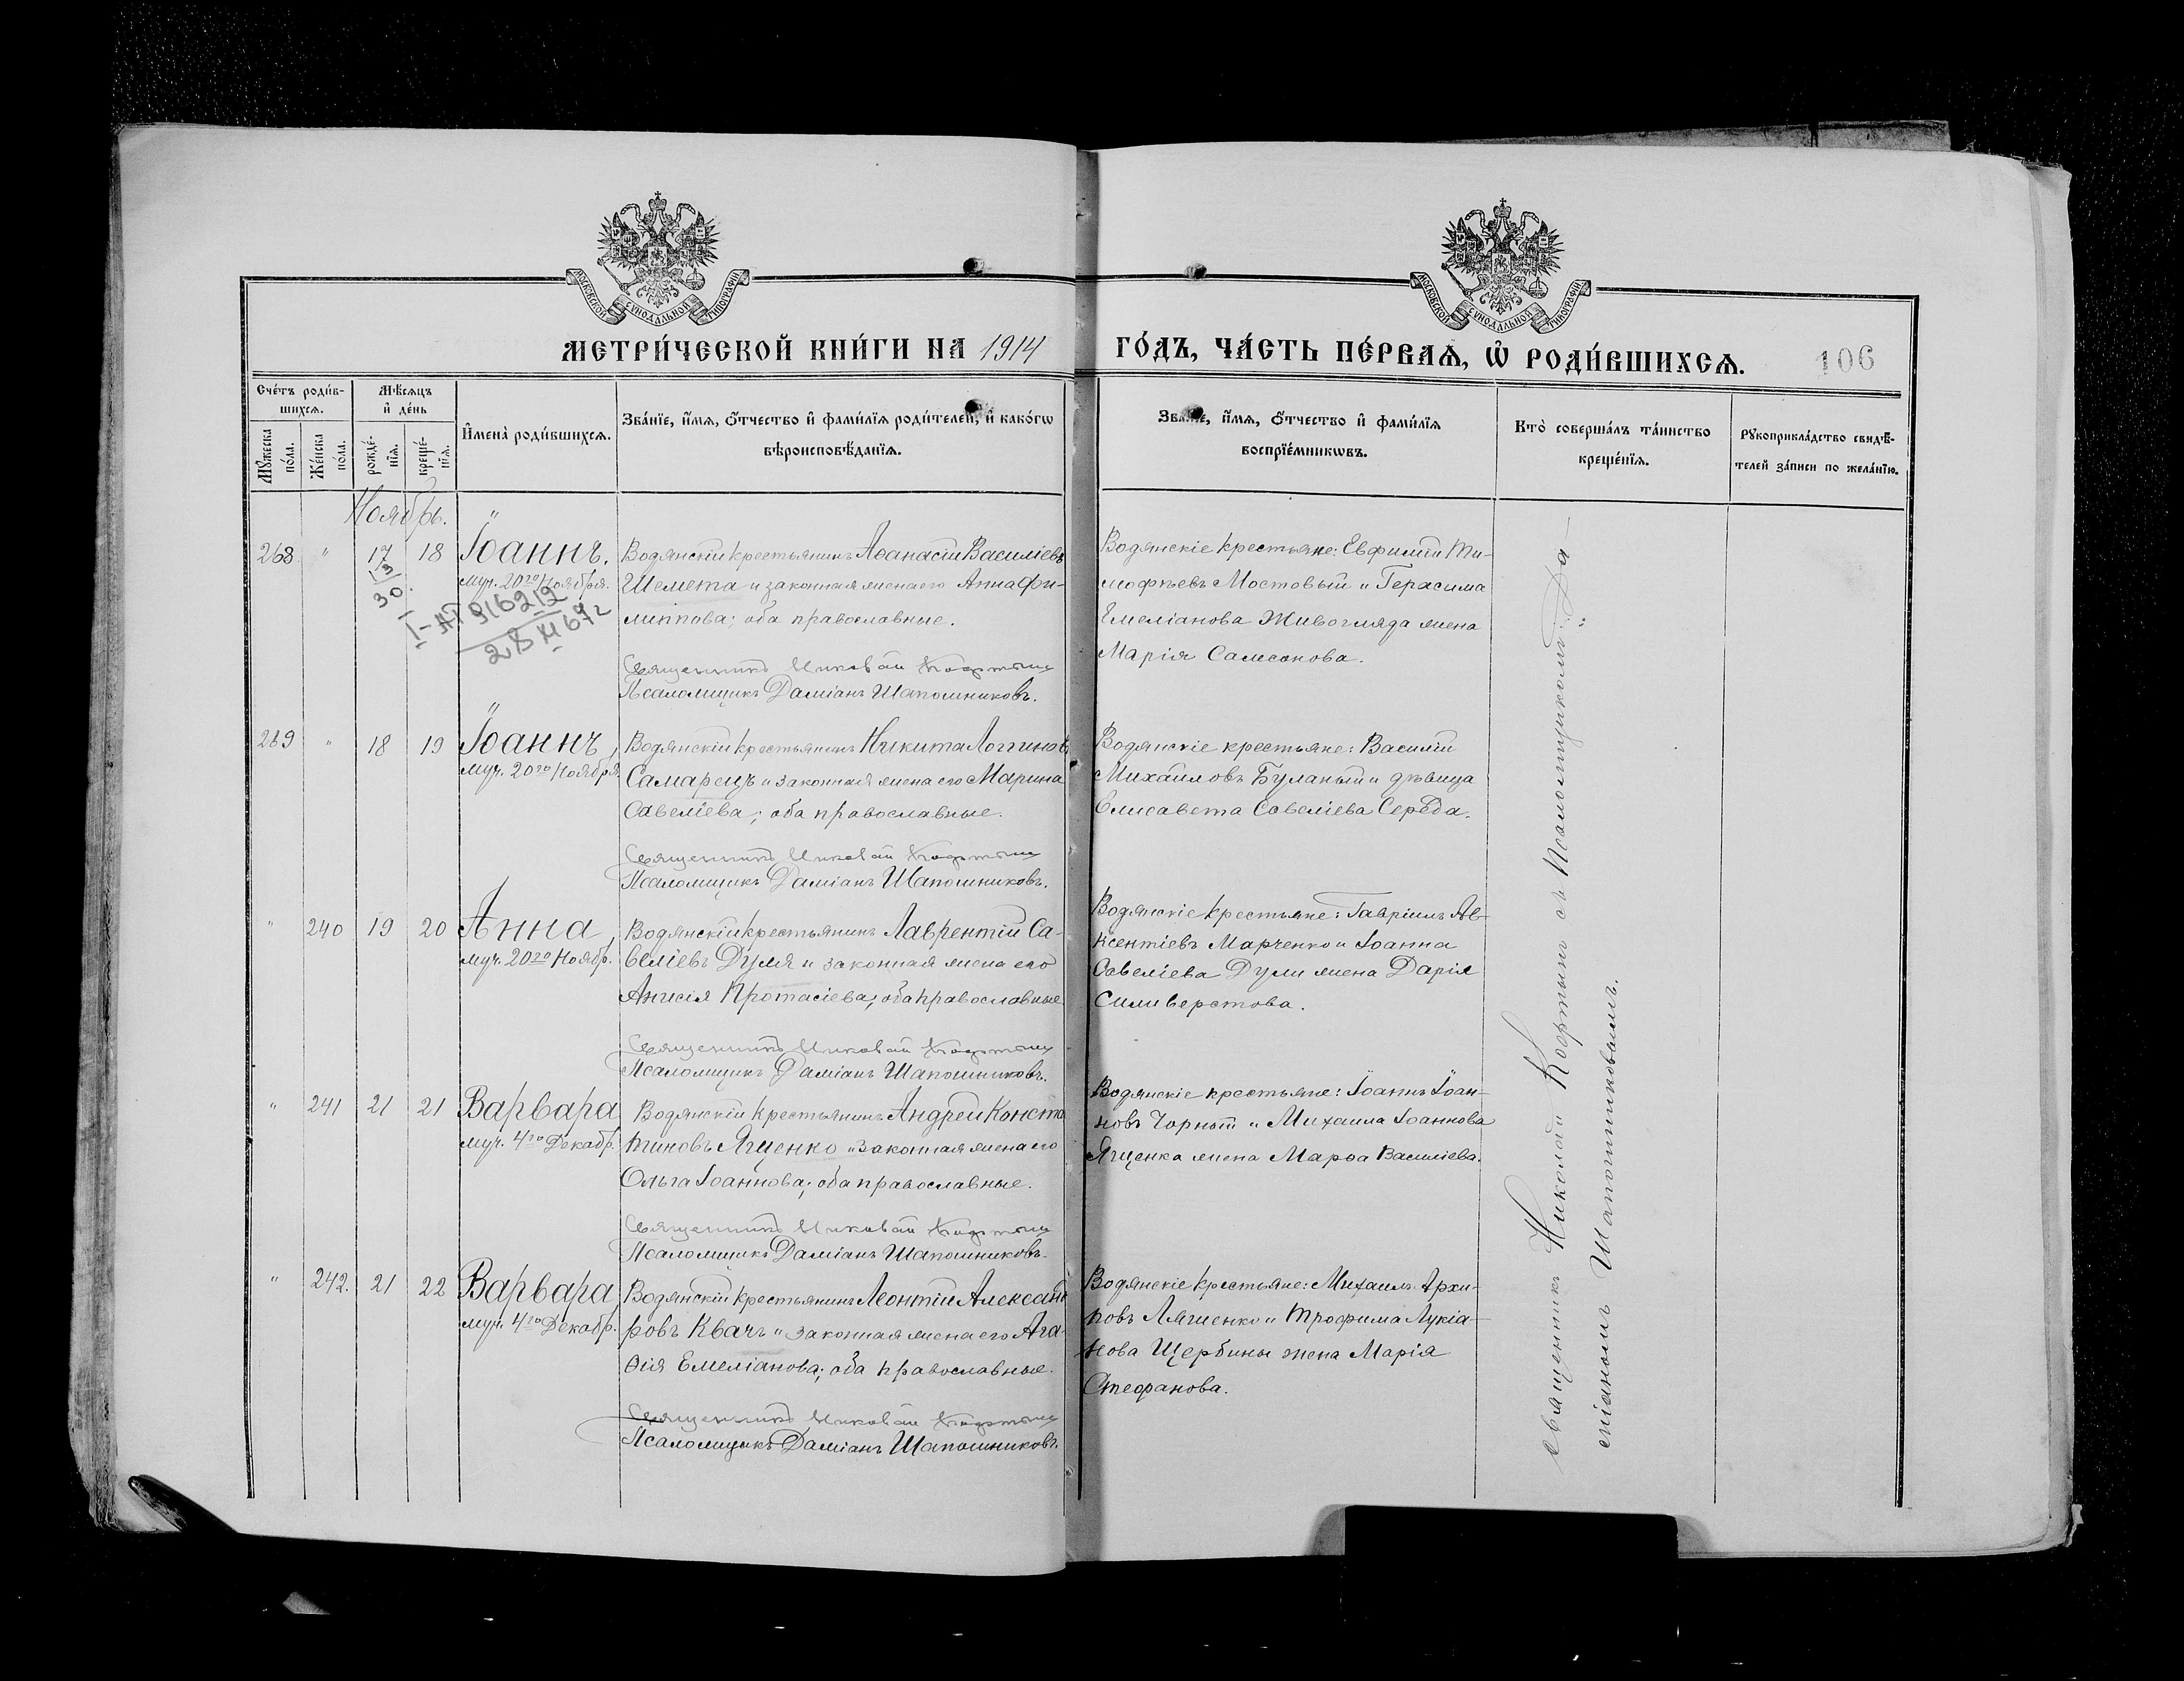 МОСКОВСКОЙ СѴНОДАЛЬНОЙ ТИПОГРАФІИ
МОСКОВСКОЙ СѴНОДАЛЬНОЙ ТИПОГРАФІИ
МЕТРИ́ЧЕСКОЙ КНИ́ГИ НА 1914 ГО́ДЪ, ЧА́СТЬ ПЕ́РВАѦ, Ѽ РОДИ́ВШИХСѦ.
106
Сче́тъ роди́в-
шихсѧ.
Мѣ́сѧцъ
и҆ де́нь
Мꙋ́жеска
по́ла.
Же́нска
по́ла.
рожде́-
нїѧ.
креще́-
нїѧ.
И҆мена̀ роди́вшихсѧ.
Зва́нїе, и҆́мѧ, ѻ҆́тчество и҆ фами́лїѧ роди́телей, и҆ како́гѡ
вѣроисповѣ́данїѧ.
Зва́нїе, и҆́мѧ, ѻ҆́тчество и҆ фами́лїѧ
воспрїе́мникѡвъ.
Кто̀ соверша́лъ та́инство
креще́нїѧ.
Рꙋкоприкла́дство свидѣ́-
телей за́писи по жела́нїю.
Ноябрь.
268 " 17 18 Іоаннъ,
муч. 20го Ноября.
Водянскій крестьянинъ Аѳанасій Василіевъ
Шемета и законная жена его Анна Фи-
липпова; оба православные.
Священникъ Николай
Псаломщикъ Даміанъ Шапошниковъ.
Водянскіе крестьяне: Евфимій Ти-
моѳеевъ Мостовый и Герасима
Емеліанова Живогляда жена
Марія Самсонова.
30
I-АП 316212
28 XI 67г
269 " 18 19 Іоаннъ,
муч. 20го Ноября
Водянскій крестьянинъ Никита Логгиновъ
Самарецъ и законная жена его Марина
Савеліева; оба православные.
Священникъ Николай
Псаломщикъ Даміанъ Шапошниковъ.
Водянскіе крестьяне: Василій
Михаиловъ Буланый и дѣвица
Елисавета Савеліева Середа.
" 240 19 20 Анна,
муч. 20го Ноябр.
Водянскій крестьянинъ Лаврентій Са-
веліевъ Дуля и законная жена его
Анисія Протасіева; оба православные
Священникъ Николай
Псаломщикъ Даміанъ Шапошниковъ.
Водянскіе крестьяне: Гавріилъ Ав-
ксентіевъ Марченко и Іоанна
Савеліева Дули жена Дарія
Силиверстова.
" 241 21 21 Варвара
муч. 4го Декабр.
Водянскій крестьянинъ Андрей Конста
тиновъ Ященко и законная жена его
Ольга Іоаннова; оба православные.
Священникъ Николай
Псаломщикъ Даміанъ Шапошниковъ.
Водянскіе крестьяне: Іоаннъ Іоан-
новъ Чорный и Михаила Іоаннова
Ященка жена Марѳа Василіева.
" 242. 21 22 Варвара,
муч. 4го Декабр.
Водянскій крестьянинъ Леонтій Александ
ровъ Квачъ и законная жена его Ага-
ѳія Емеліанова; оба православные.
Священникъ Николай
Псаломщикъ Даміанъ Шапошниковъ.
Водянскіе крестьяне: Михаилъ Архи-
повъ Ляшенко и Трофима Лукіа-
нова Щербины жена Марія
Стефанова.
священникъ Николай съ Псаломщикомъ Да-
міаномъ Шапошниковымъ.